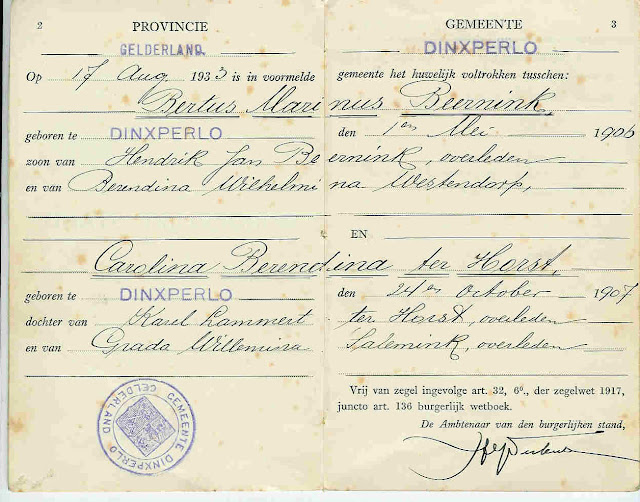 2 PROVINCIE
GELDERLAND.
Op 17 Aug 1933 is in voormelde
Bertus Mari
geboren te DINXPERLO
zoon van Hendrik Jan Be
en van Berendina Wilhelmi
Carolina Berend
geboren te DINXPERLO
dochter van Karel Lammert
en van Grada Willemina
GEMEENTE DINXPERLO
GELDERLAND
GEMEENTE 3
DINXPERLO
gemeente het huwelijk voltrokken tusschen:
nus Beernink,
den 1en Mei 1906
ernink, overleden
na Westendorp,
EN
ina ter Horst,
den 24en October 1907
ter Horst, overleden
Salemink, overleden
Vrij van zegel ingevolge art. 32, 6°., der zegelwet 1917,
juncto art. 136 burgerlijk wetboek.
De Ambtenaar van den burgerlijken stand,